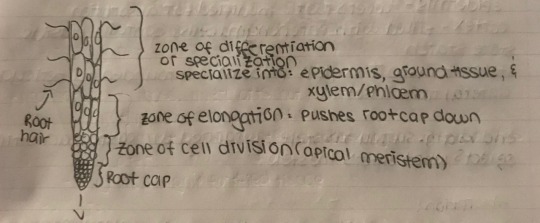 zone of differentiation
or specialization
specialize into: epidermis, ground tissue, &
xylem/phloem
Root
hair
zone of elongation: pushes rootcap down
zone of cell division (apical meristem)
Root cap